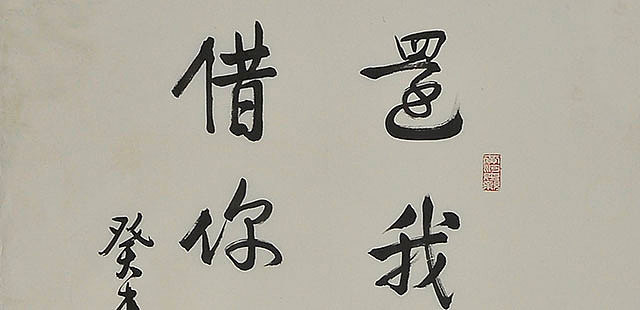 還我
借你
癸未